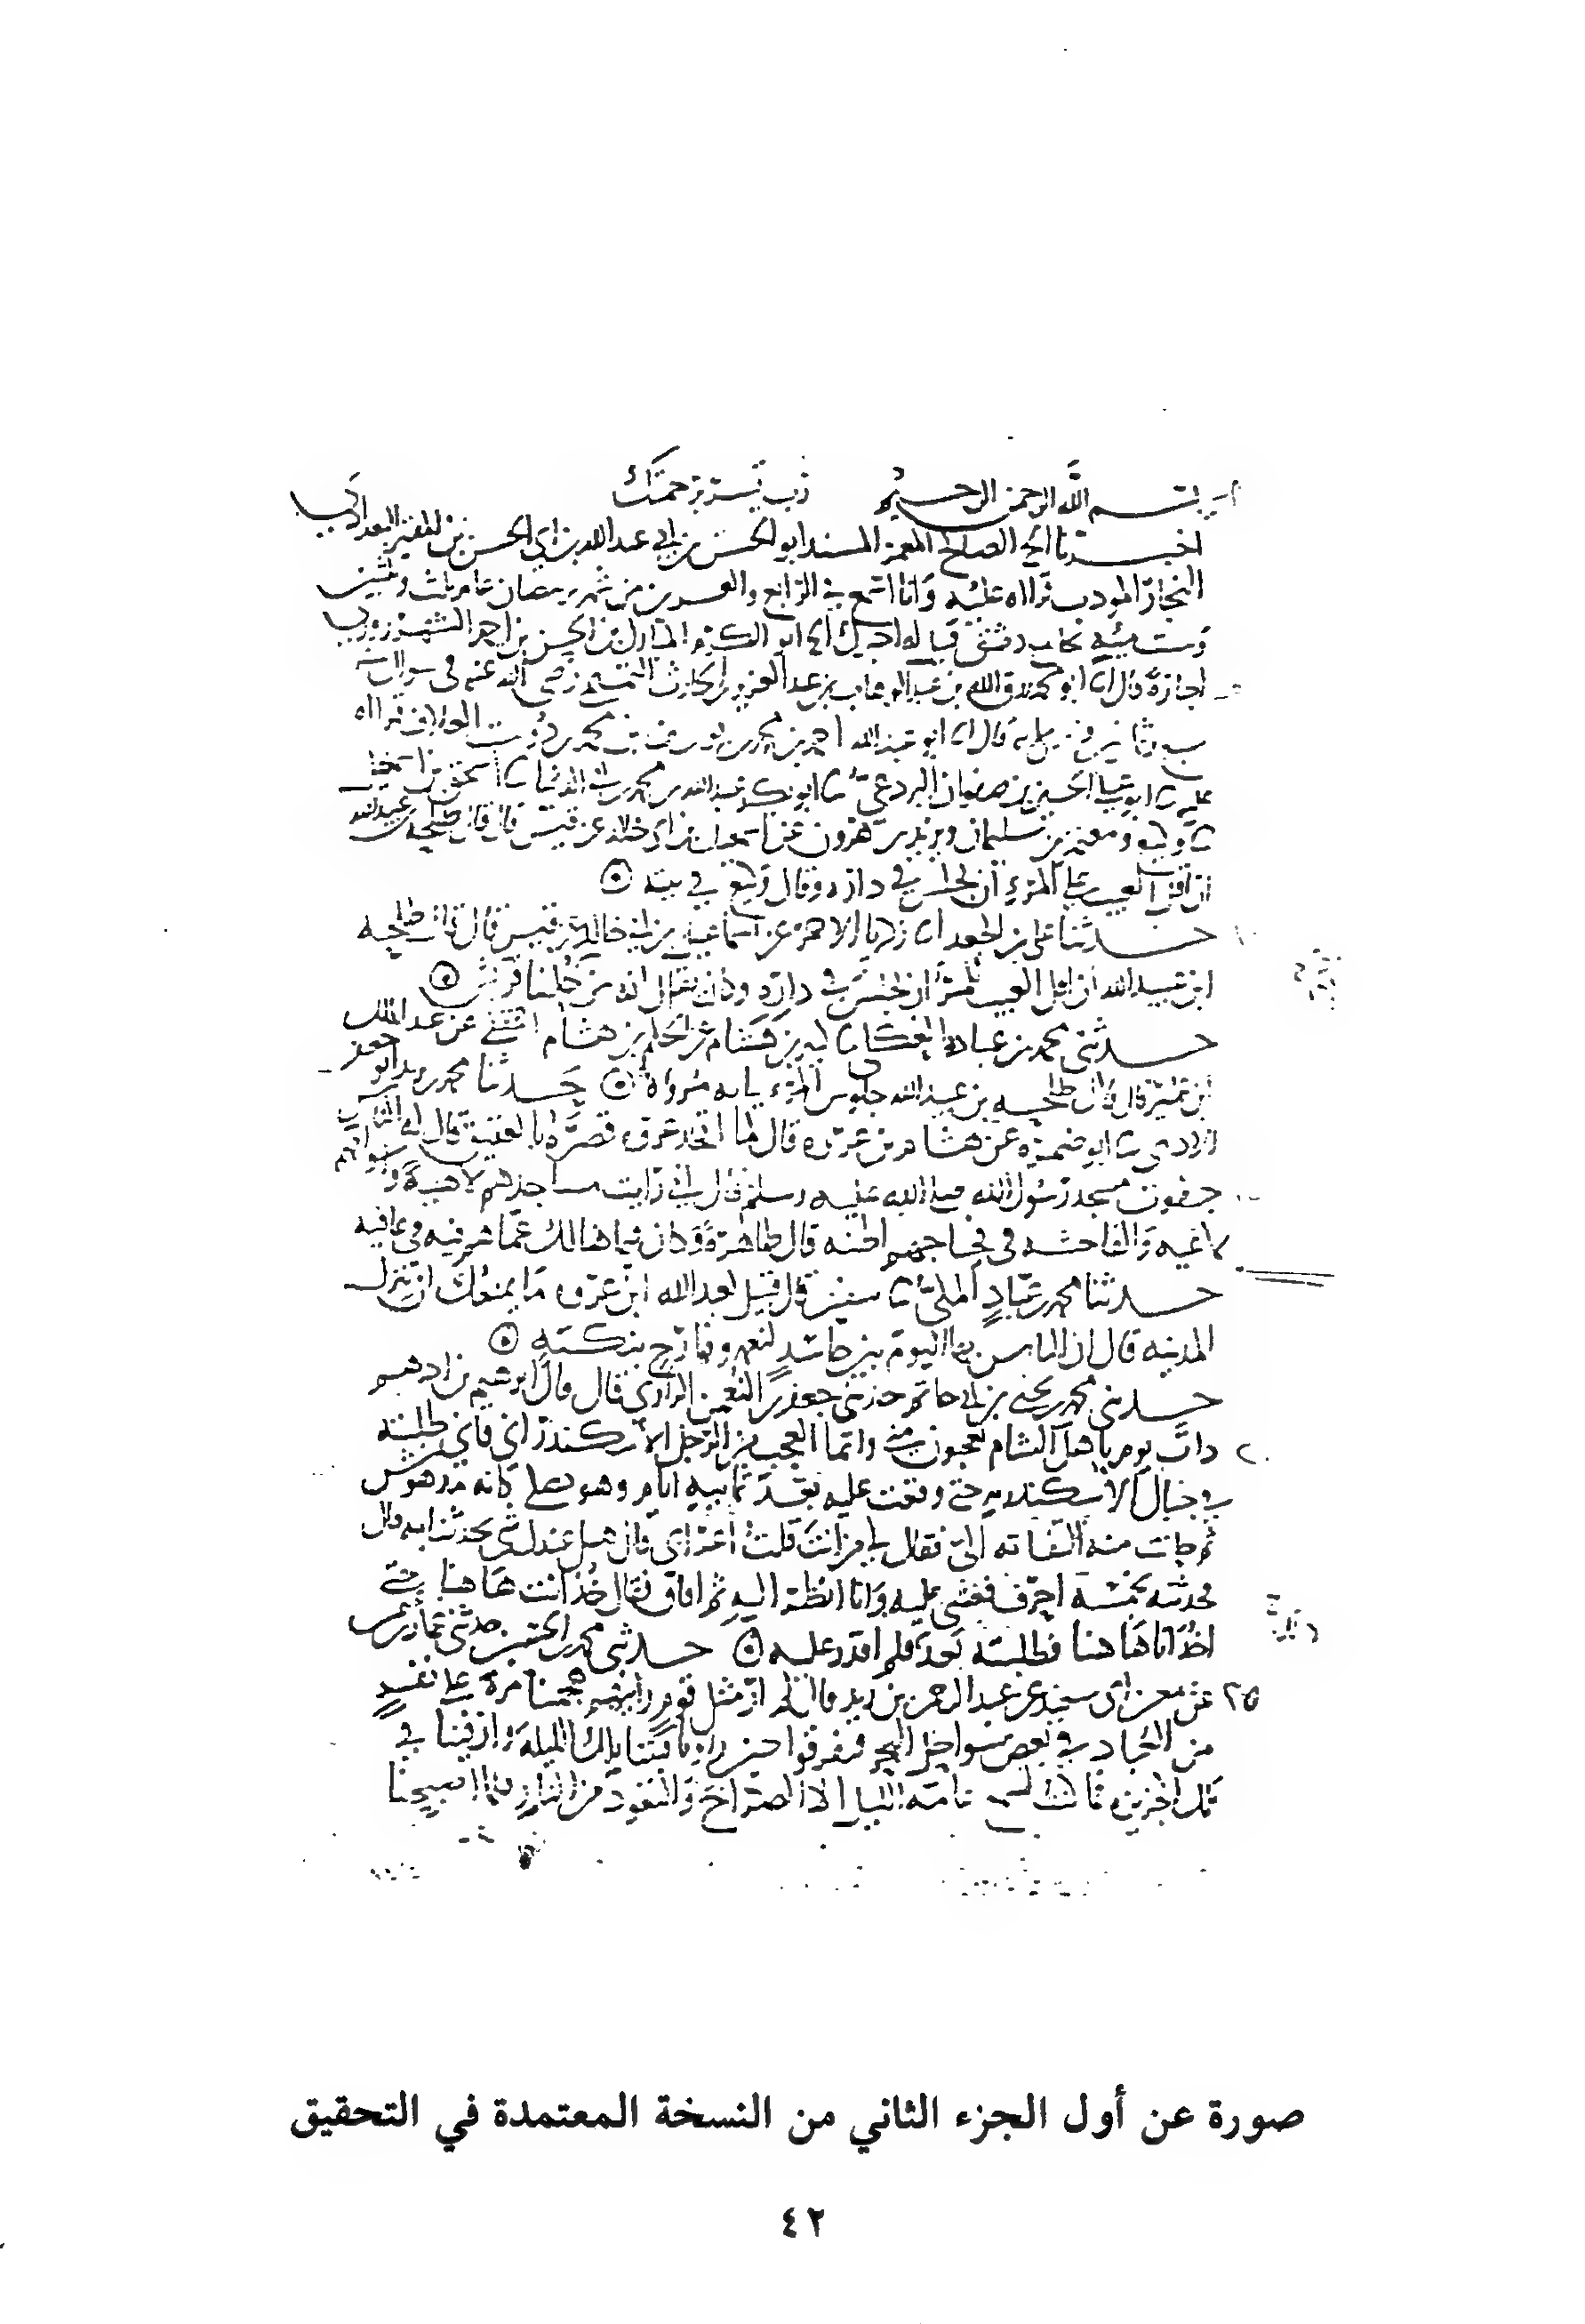 بسم الله الرحمن الرحيم رب يسر برحمتك
اخبرنا الشيخ الصالح المعمر المسند ابو الحسن بن ابي عبد الله بن ابي الحسن بن المقير البغدادي
النجار المودب قراه عليه وانا اسمع في الرابع والعشرين من شهر رمضان عام ثلث وثلثين
وست مئه بجامع دمشق قيل له اخبرك ابو الكرم المبارك بن الحسن بن احمد الشهرزوري
اجازة قال ابو محمد رزق الله بن عبد الوهاب بن عبد العزيز بن الحارث التميمي رضي الله عنه في شوال سنه
قال ابو عبد الله احمد بن محمد بن يوسف بن محمد بن دوست العلاف قراه
عليه ابو علي الحسين بن صفوان البردعي ابو بكر عبد الله بن محمد بن ابي الدنيا اسحق بن اسمعيل
وكيع ومعتمر بن سليمان ويزيد بن هرون عن اسمعيل بن ابي خالد عن قيس قال قال طلحة بن عبيد الله
ان اقل العيب على المرء ان يجلس في داره وقال وكيع في بيته
حدثنا علي بن الجعد زهير الاحمر عن اسماعيل بن ابي خالد عن قيس قال قال طلحه
ابن عبيد الله ان اقل العيب للمرء ان يجلس في داره وكان يقال انه من حلماء قريش
حدثني محمد بن عباد بن هشام عن عبد الملك
ابن عمير قال قال طلحه بن عبيد الله جلوس المرء ببابه مروءة حدثنا محمد ابو جعفر
الادمي ابو ضمره عن هشام بن عروه قال لما اتخذ عروه قصره بالعقيق قال له الناس
جفوت مسجد رسول الله صلى الله عليه وسلم قال اني رايت مساجدهم لاهية واسواقهم
لاغيه والفاحشه في فجاجهم قال ظاهرة وكان فيما هنالك عما هم فيه في عافيه
حدثنا محمد بن عباد المكي سفين قال قيل لعبد الله ابن عروه ما يمنعك ان تنزل
المدينه قال ان الناس بها اليوم بين حاسد لنعمه وفارح بنكبته
حدثني محمد بن يحيى بن ابي حاتم حدثني جعفر بن النعمن الرازي قال قال ابرهيم بن ادهم
ذات يوم يا هل الشام تعجبون مني وانما العجب من الرجل الاسكندراني فاني طلبته
في جبال الاسكندريه حتى وقعت عليه بعد ثمانيه ايام وهو يصلي كانه مدهوش
ثم حانت منه التفاته الي فقال لي من انت قلت اعرابي قال هل عندك شي تحدثنا به قال
فحدثته بخمسة احرف فغشي عليه وانا انظر اليه ثم افاق فقال خذ انت هاهنا حتى
اخذ انا هاهنا فطلبته بعد فلم اقدر عليه حدثني محمد بن الحسين حدثني عمار بن
٢٥ عثمن عن عبد الرحمن بن زيد قال لم ار مثل قوم رايتهم هجمنا مرة على نفر
من العباد في بعض سواحل البحر فتفرقوا حين راونا فبتنا تلك الليلة وارفينا في
تلك الجزيره فما كنت اسمع عامه الليل الا الصراخ والتعوذ من النار فلما اصبحنا
صورة عن أول الجزء الثاني من النسخة المعتمدة في التحقيق
٤٢